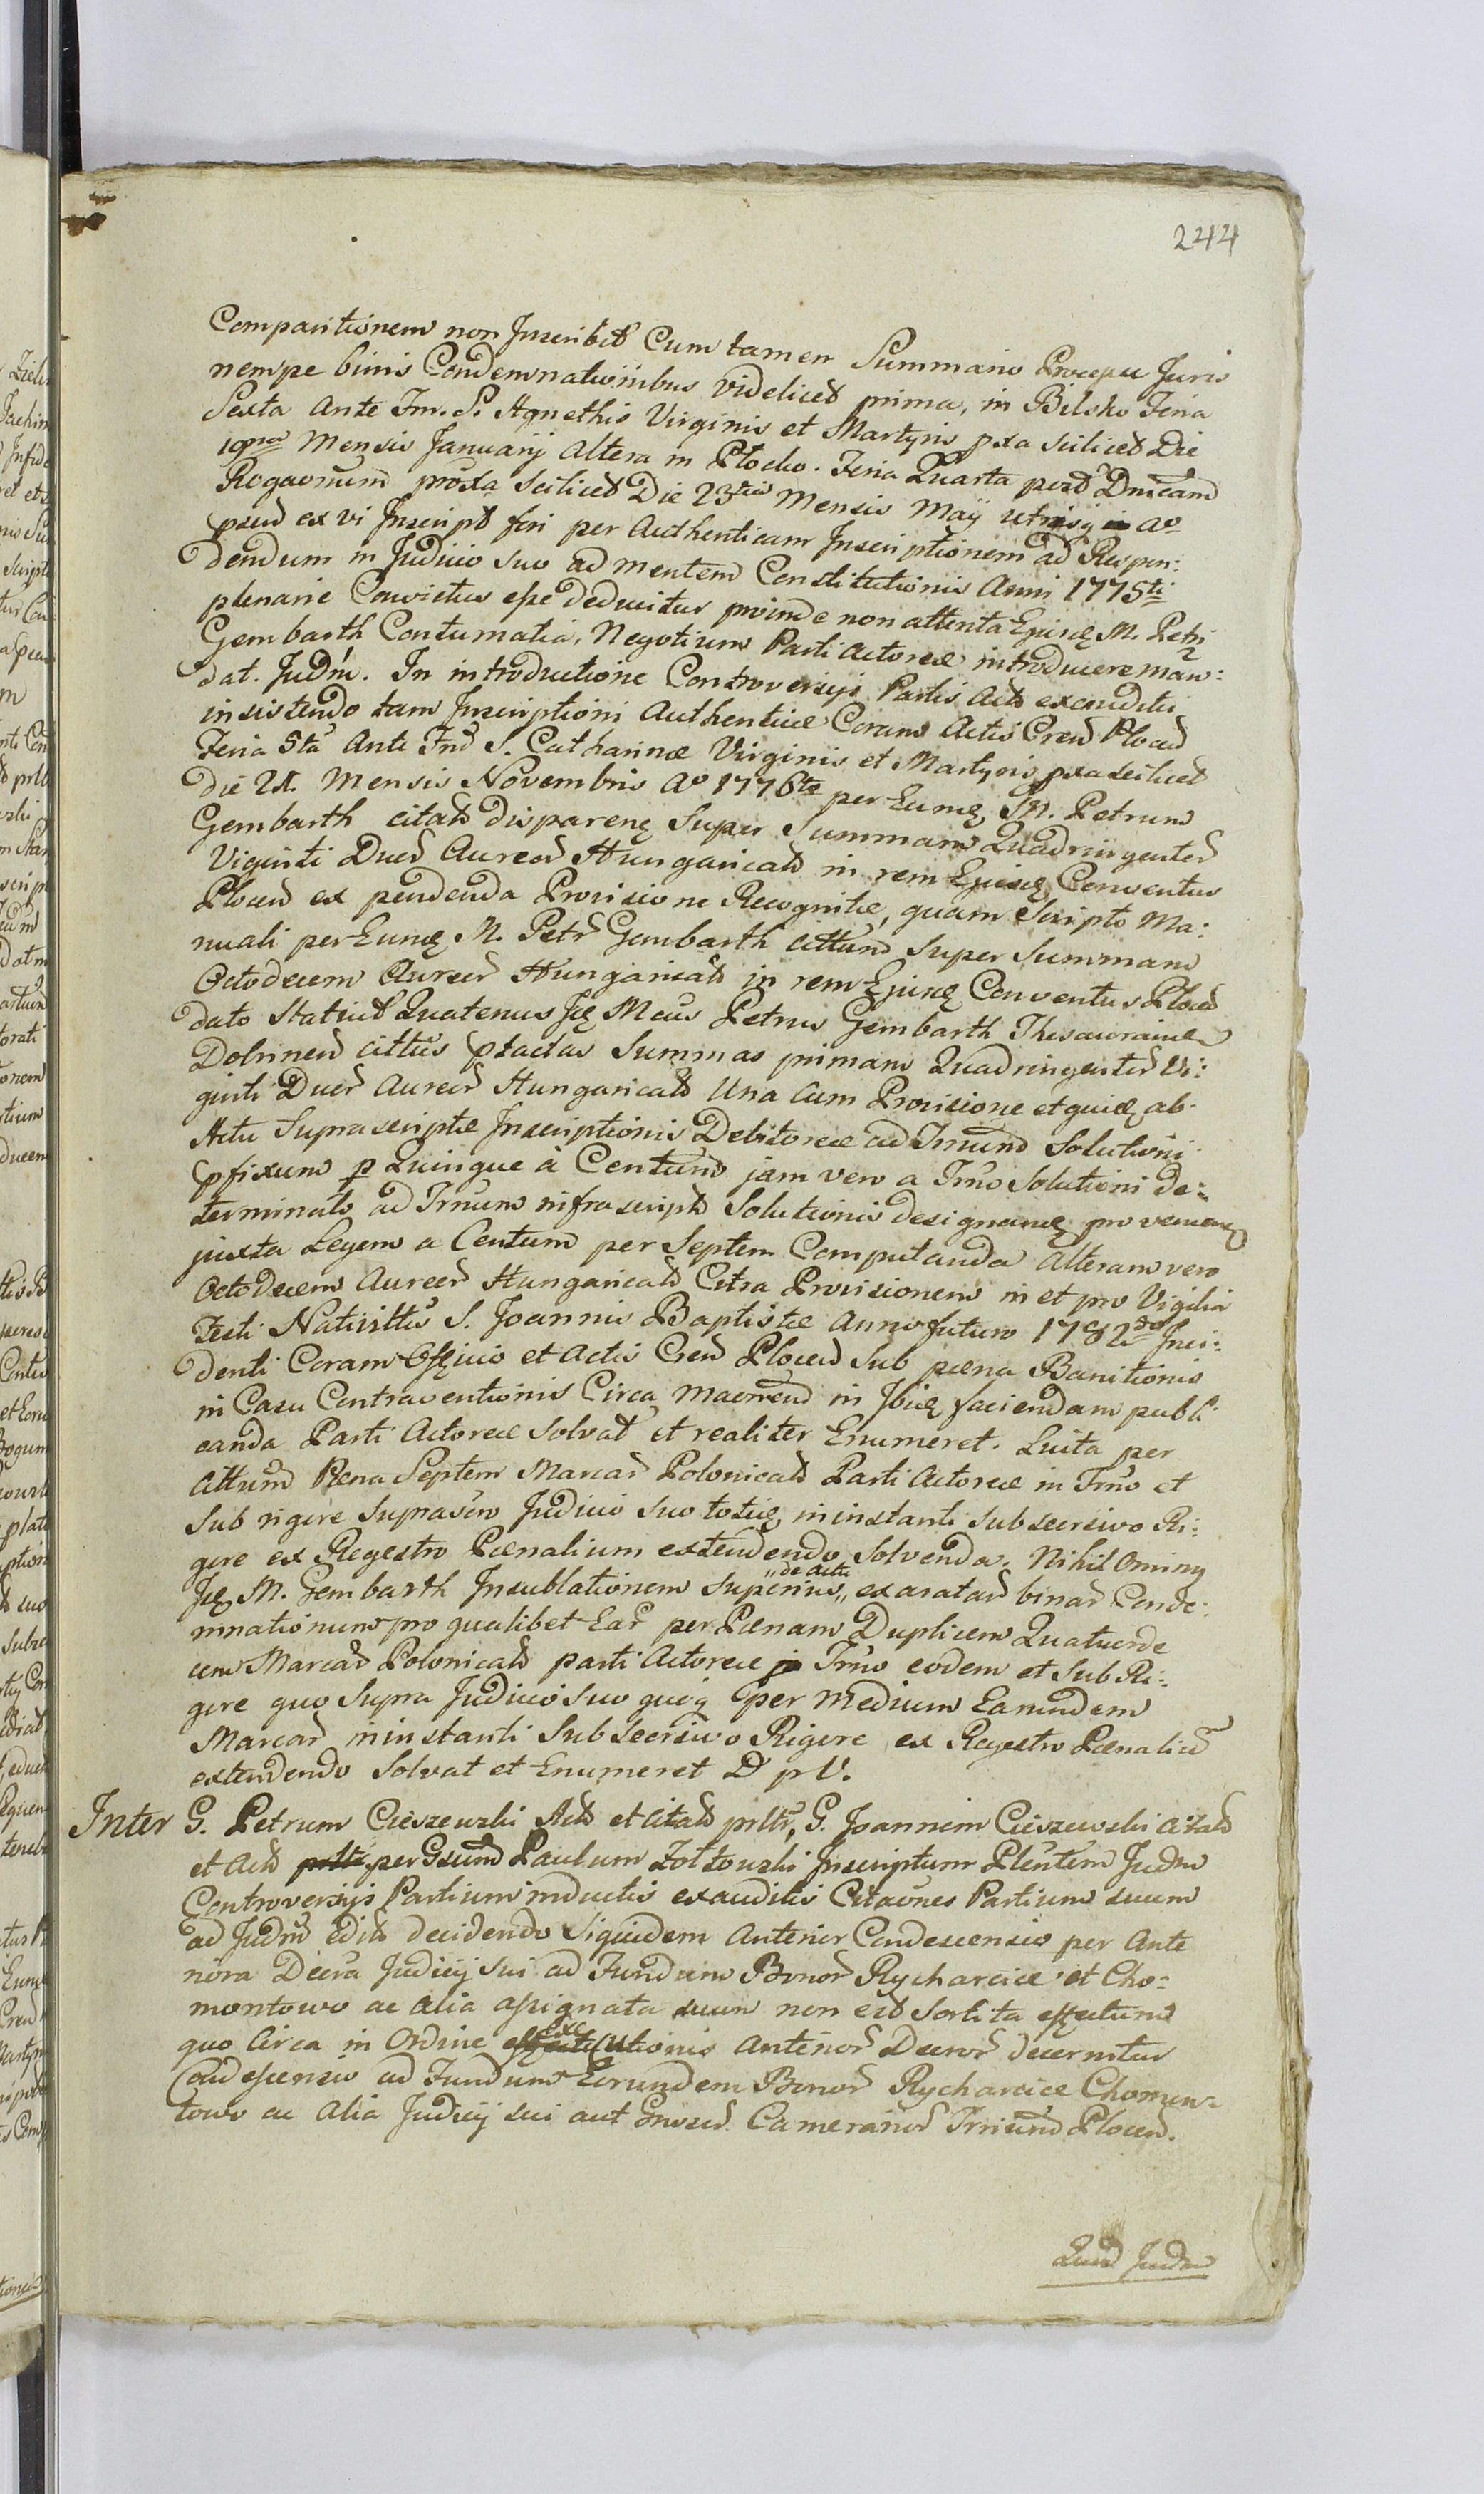 244
Comparitionem non Inscribit Cum tamen Summario Processu Juris
nempe binis Condemnationibus videlicet prima, in Bilsko Feria
Sexta Ante Fm. S. Agnethis Virginis et Martyris pxa scilicet Die
19na Mensis Januarij Altera in Plocko. Feria Quarta post Dnicam
Rogaonum proxa scilicet Die 23tia Mensis Maij utrisq ao
psen ex vi Inscript fori per Authenticam Inscriptionem ad Respon:
dendum in Judicio suo ad mentem Constitutionis Anni 1775ti
plenarie Convictus esse deducitur proinde non attenta Ejusq M. Petri
Gembarth Contumatia, Negotium Parti Actoreæ introducere man:
dat. Judm. In introductione Controversijs Partis Act exauditis
insistendo tam Inscriptioni Authenticæ Coram Actis Cren Plocen
Feria 5ta Ante Fnd S. Catharinæ Virginis et Martyris pxa scilicet
die 21. Mensis Novembris Ao 1776to per Eumq M. Petrum
Gembarth citat disparenq Super Summam Quadringentor
Viginti Duor Aureor Hungaricat in rem Ejusq Conventus
Plocen ex pendenda Provisione Recognitæ, quam Scripto Ma:
nuali per Eumq M. Petr Gembarth cittum super Summam
Octodecem Aureor Hungaricat in rem Ejusq Conventus Plocen
dato Statuit Quatenus Isq Mcus Petrus Gembarth Thesaurarius
Dobrinen cittus ptactas Summas primam Quadringentor Vi:
ginti Duor Aureor Hungaricat Una Cum Provisione etquid ab
Actu Suprascriptæ Inscriptionis Debitoreæ ad Tmum Solutioni
pfixum p Quinque à Centum jam vero a Tmo Solutioni de:
terminato ad Tmum infrascript Solutionis designanq provenienq
juxta Legem a Centum per Septem Computanda Alteram vero
Octodecem Aureor Hungaricat Citra Provisionem in et pro Vigilia
Festi Nativittis S. Joannis Baptistæ Anno futuro 1782do Inci:
denti Coram Officio et Actis Cren Plocen Sub pæna Banitionis
in Casu Contraventionis Circa in Ibiq faciendam publi
canda Parti Actoreæ Solvat et realiter Enumeret. Luita per
Cittum Pæna Septem Marcar Polonicat Parti Actoreæ in Tmo et
Sub rigore Suprascro Judicio suo totiq in instanti sub secrsivo Ri:
gore ex Regestro Pænalium extendendo Solvenda. Nihil Ominq
Isq M. Gembarth Insublationem Superius „de actu„ exaratar binar Conde:
mnationum pro qualibet Ear per Pænam Duplicem Quatuorde
cem Marcar Polonicat parti Actoreæ in Tmo eodem et Sub Ri:
gore quo Supra Judicio suo quoq per Medium Earundem
Marcar in instanti Sub secrsivo Rigore ex Regestro Pænaliu
extendendo Solvat et Enumeret D p V.
Inter G. Petrum Cieszewski Act et citat prltr, G. Joannem Cieszewski Citat
et Act prltr per Gsum Paulum Zoltowski Inscriptum Plentem Judm
Controversijs Partium inductis exauditis Citaones Partium suum
ad Judm edit decidendo Siquidem Anterior Condescensio per Ante
riora Decra Judicij sui ad Fundum Bonor Rycharcice et Cho:
montowo ac alia assignata suum non est sortita effectum
quo Circa in Ordine executionis Anterior Decror decernitur
Condescensio ad Fundum Eorundem Bonor Rycharcice Chomon:
towo ac Alia Judicij sui aut Gnosor Camerarior Trium Plocen.
Quod Judm